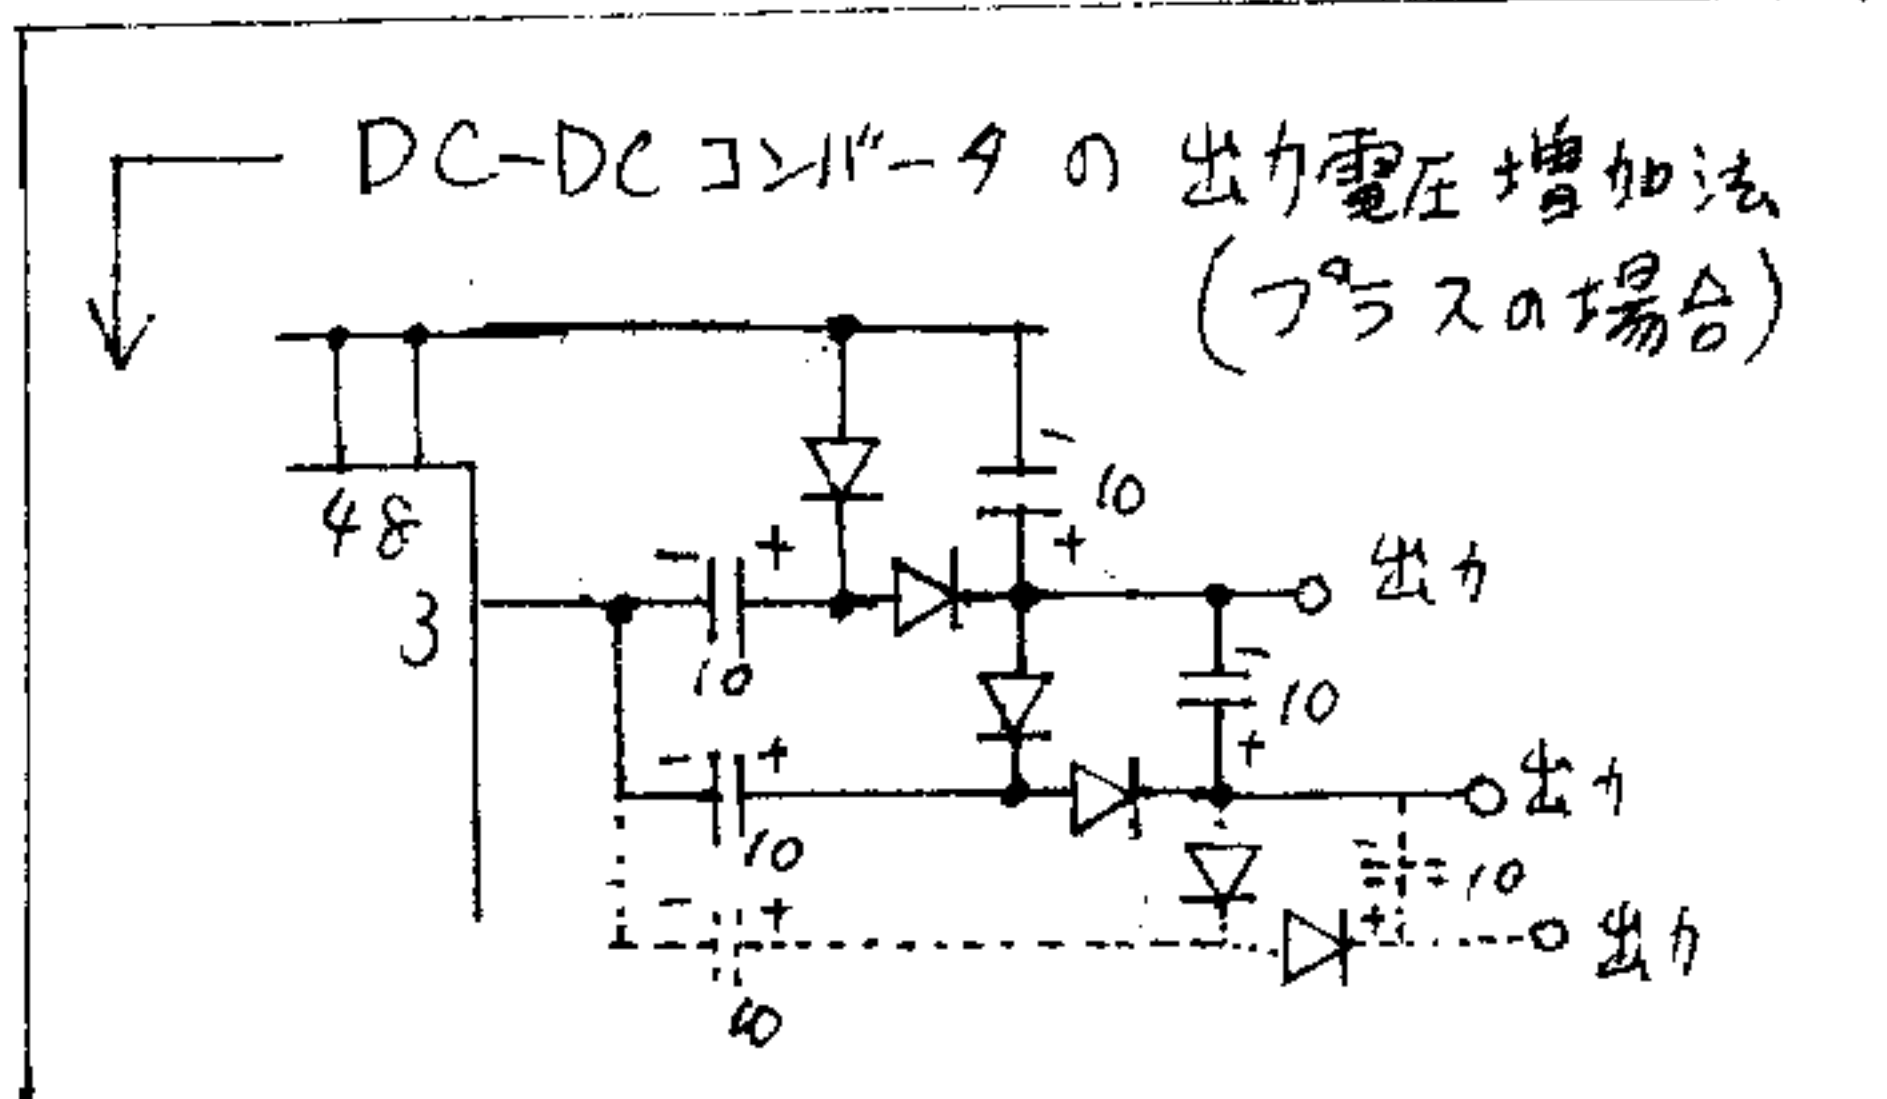 DC-DCコンバータの出力電圧増加法
(プラスの場合)
48
3
- +
10
-
10
+
出力
- +
10
-
10
+
出力
- +
10
-
10
+
出力